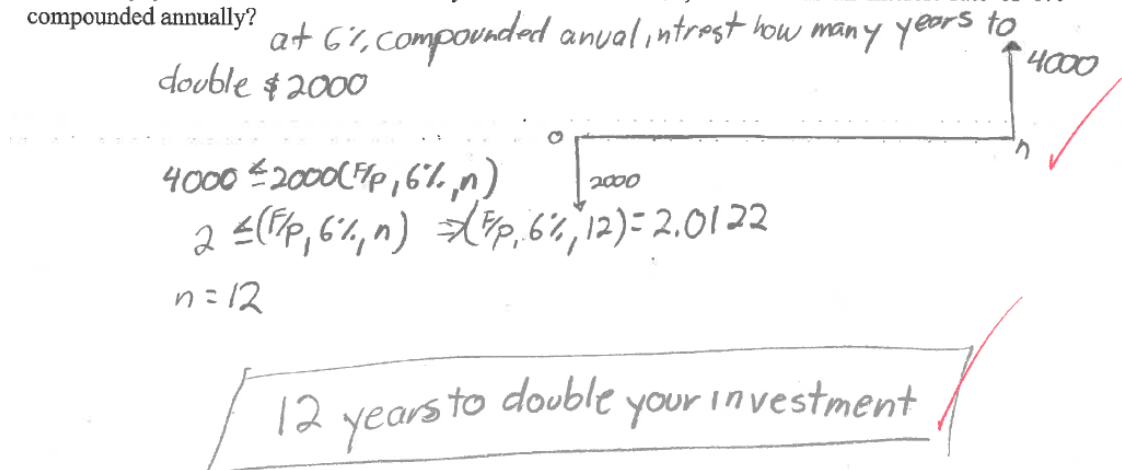 compounded annually?
at 6%, compounded anual intrest how many years to
double $2000
4000
0
n
2000
4000 ≤ 2000(F/P, 6%, n)
2 ≤ (F/P, 6%, n) ⇒ (F/P, 6%, 12) = 2.0122
n = 12
12 years to double your investment